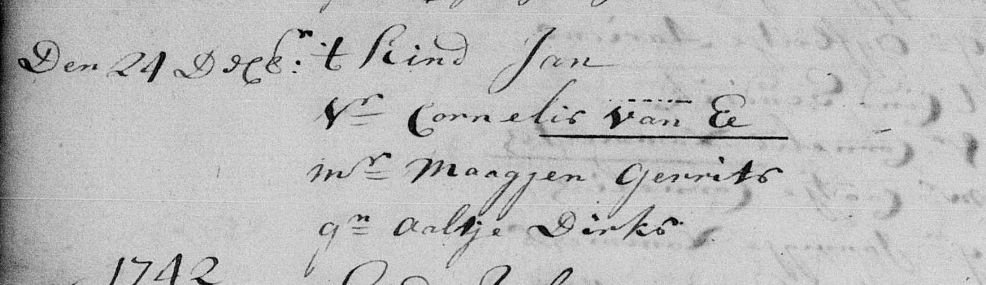 Den 24 Decbr: t Kind Jan
Vr Cornelis van Ee
mr Maagjen Gerrits
gn Aaltje Dirks
1742